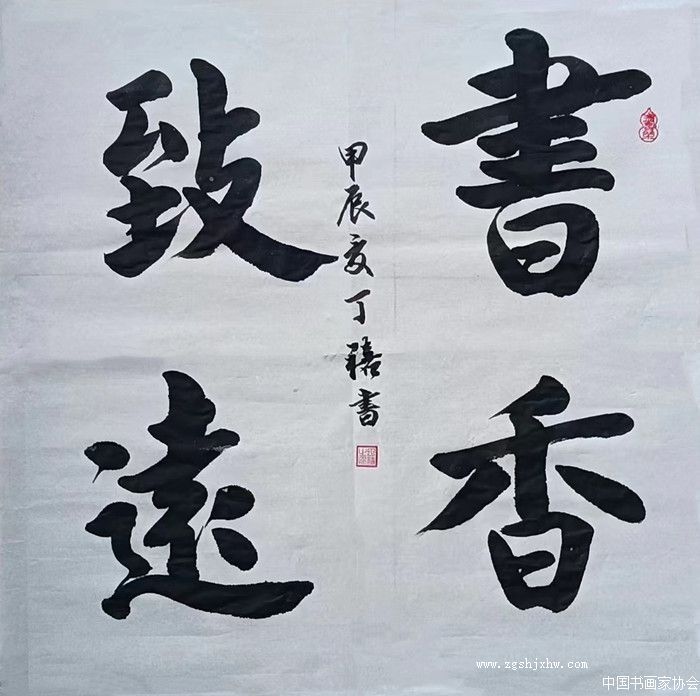 書香
致遠
甲辰夏丁禧書
www.zgshjxhw.com
中国书画家协会